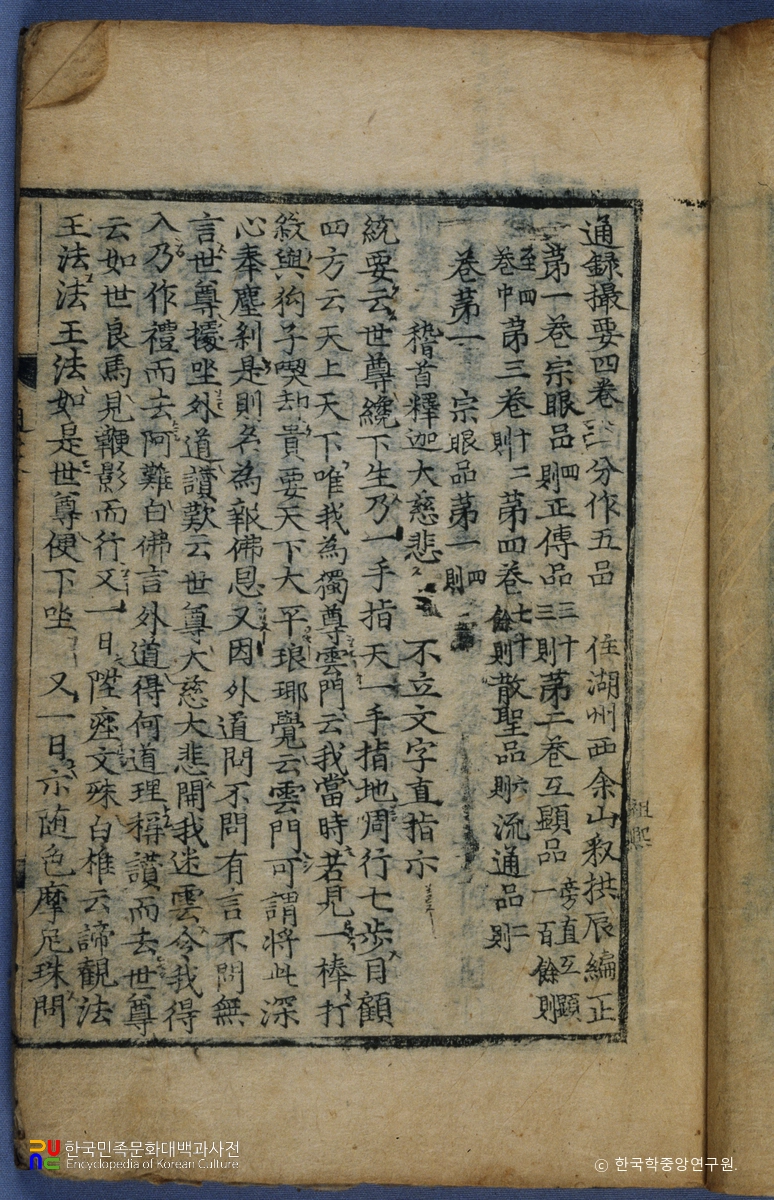 通録撮要四卷 分作五品 住湖州西余山釈拱辰編正
第一卷宗眼品四則正傳品三十三則第二卷互顯品一百餘則旁直互顯
至四卷中第三卷十二則第四卷七十餘則散聖品六則流通品二則
卷第一 宗眼品第一四則
稽首釋迦大慈悲 不立文字直指示
統要云世尊纔下生乃一手指天一手指地周行七步目顧
四方云天上天下唯我為獨尊雲門云我當時若見一棒打
殺與狗子喫却貴要天下大平琅瑘覺云雲門可謂將此深
心奉塵刹是則名為報佛恩又因外道問不問有言不問無
言世尊據坐外道讚歎云世尊大慈大悲開我迷雲令我得
入乃作禮而去阿難白佛言外道得何道理稱讚而去世尊
云如世良馬見鞭影而行又一日陞座文殊白椎云諦觀法
王法法王法如是世尊便下坐 又一日示随色摩尼珠問
祖
한국민족문화대백과사전
Encyclopedia of Korean Culture
© 한국학중앙연구원